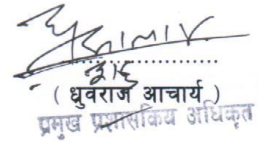 ( धुवराज आचार्य )
प्रमुख प्रशासकिय अधिकृत